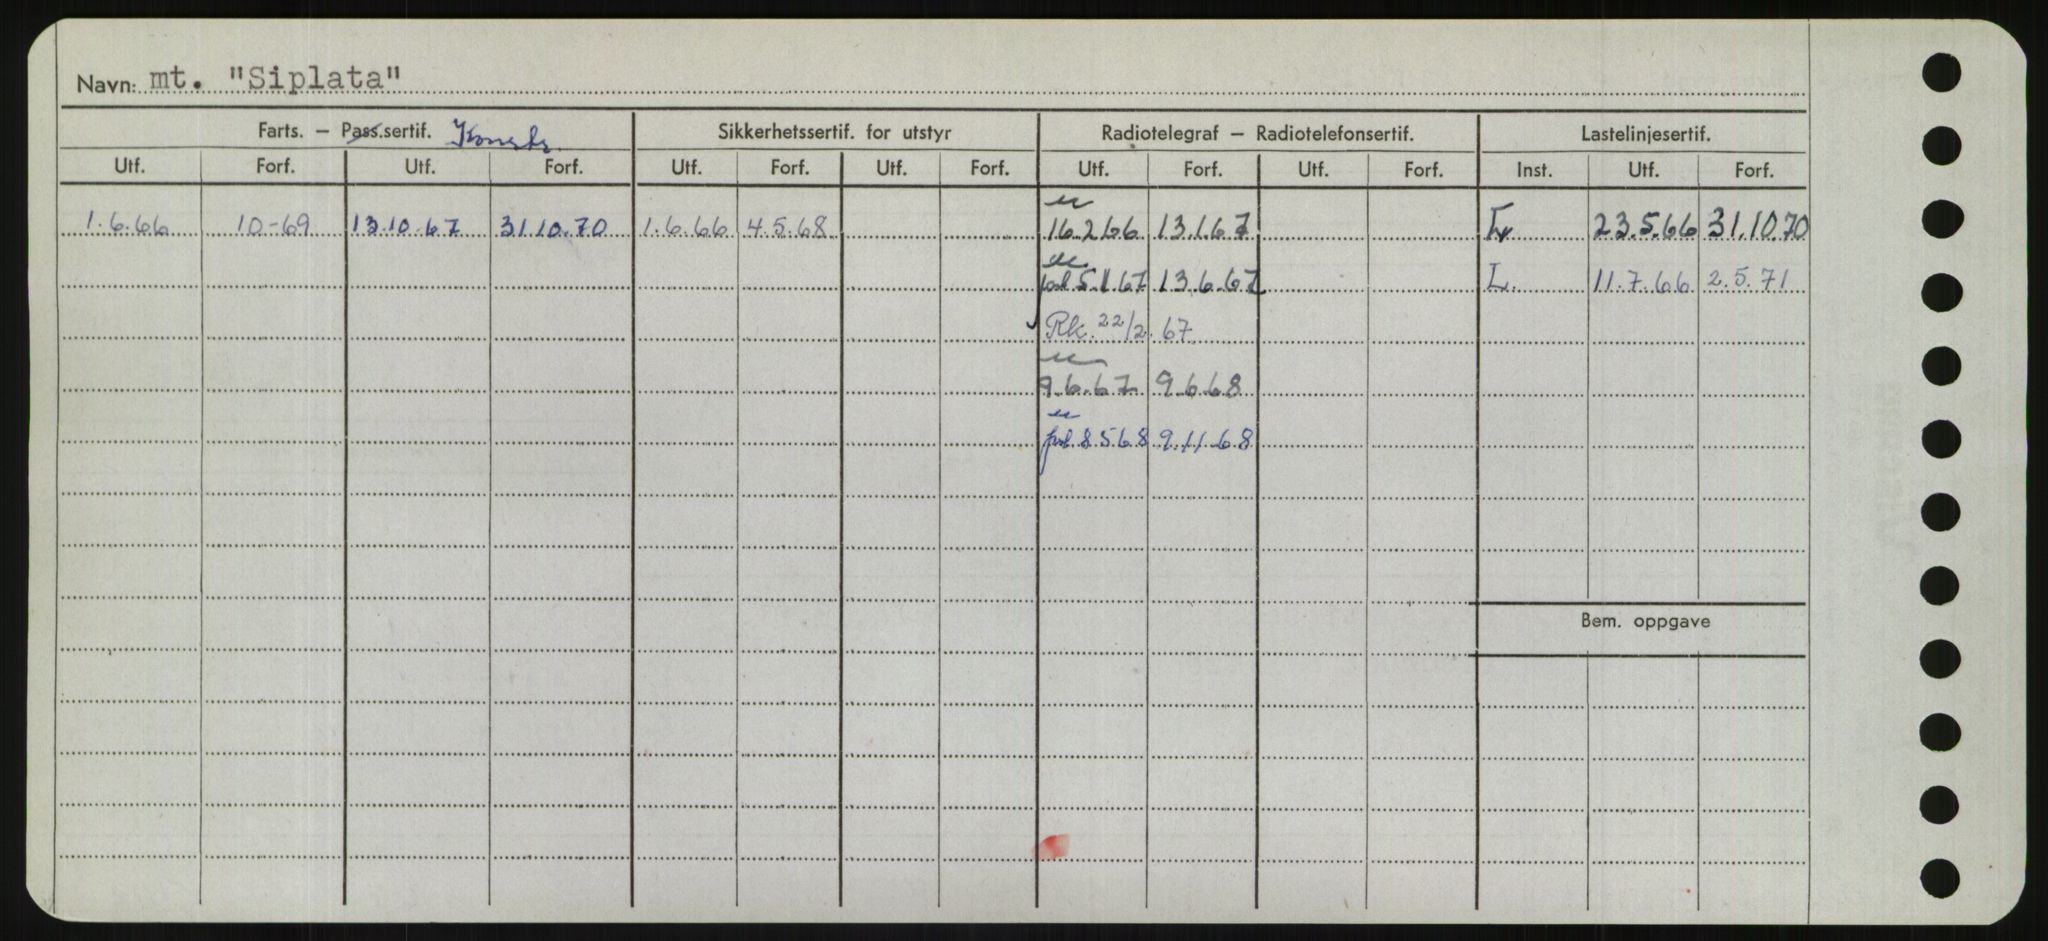 Navn: mt. "Siplata"
Farts. – Pass.sertif. Konstr. Sikkerhetssertif. for utstyr Radiotelegraf – Radiotelefonsertif. Lastelinjesertif.
Utf. Forf. Utf. Forf. Utf. Forf. Utf. Forf. Utf. Forf. Utf. Forf. Inst. Utf. Forf.
1.6.66 10-69 13.10.67 31.10.70 1.6.66 4.5.68 16.2.66 13.1.67 23.5.66 31.10.70
5.1.67 13.6.67 L. 11.7.66 2.5.71
Rk. 22/2.67
9.6.67 9.6.68
8.5.68 9.11.68
Bem. oppgave